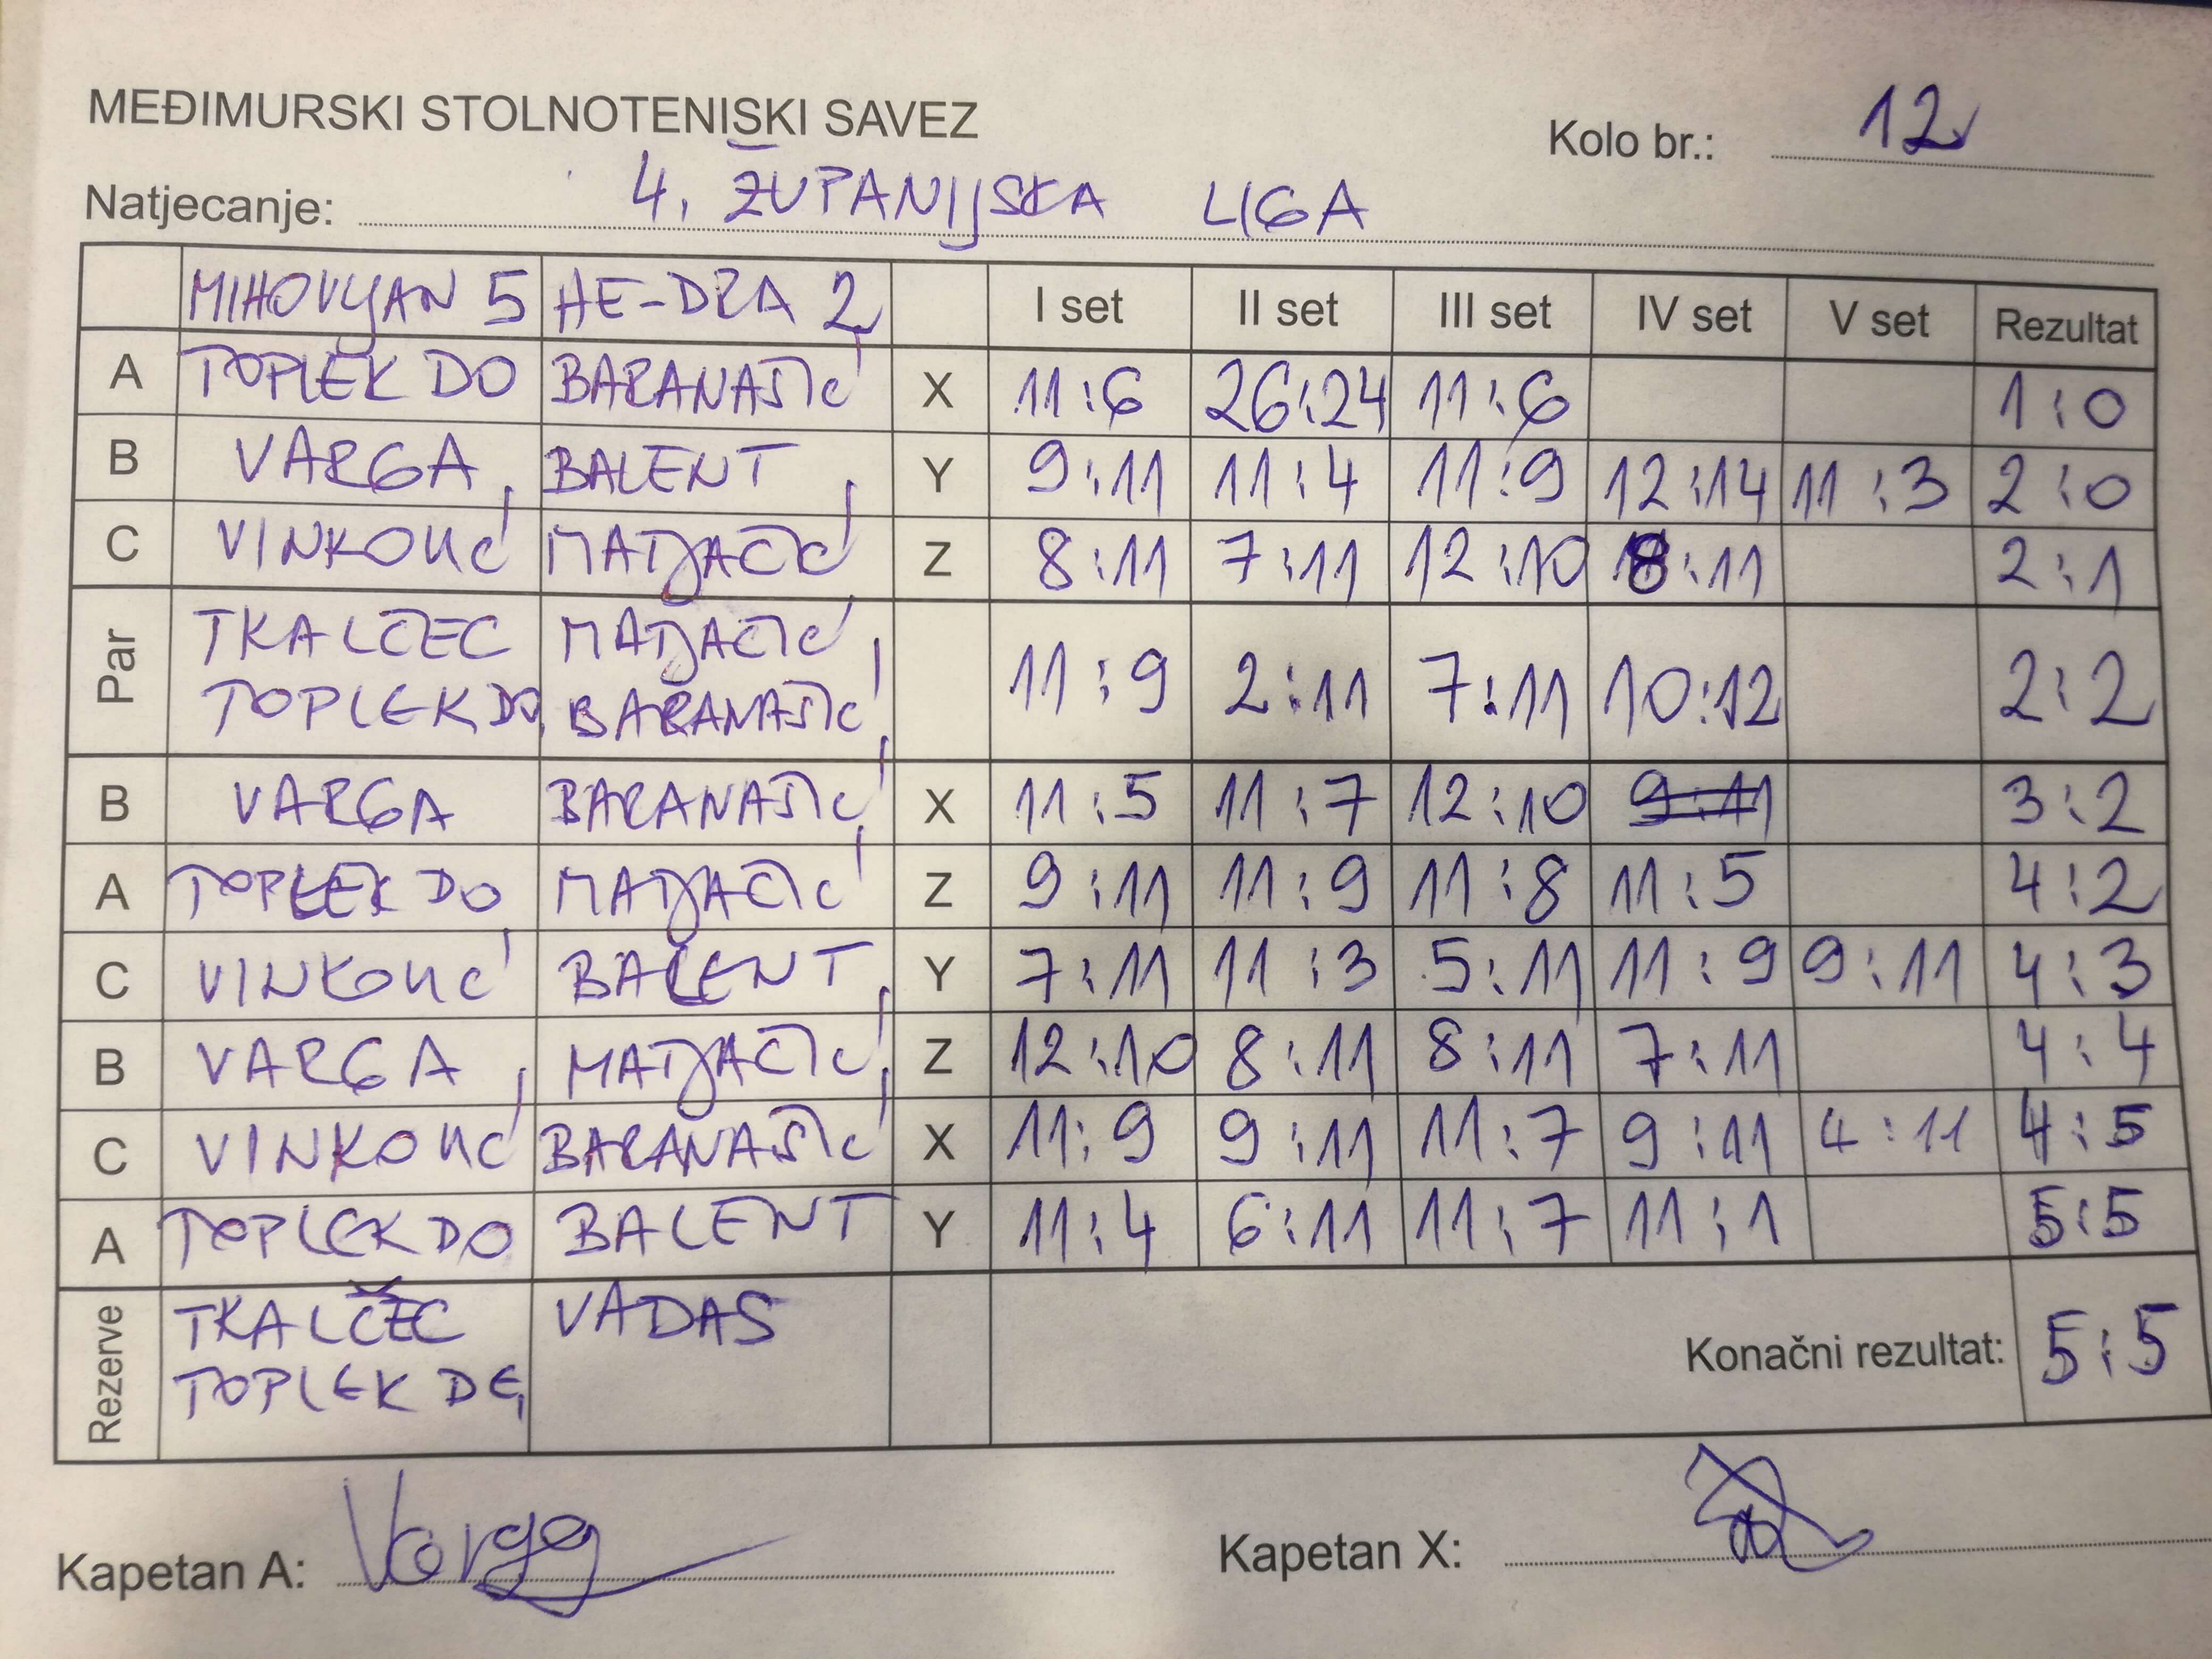 MEĐIMURSKI STOLNOTENISKI SAVEZ
Kolo br.: 12
Natjecanje: 4. ŽUPANIJSKA LIGA
MIHOVLJAN 5 HE-DRA 2 I set II set III set IV set V set Rezultat
A TOPLEK DO BARANAŠIĆ X 11:6 26:24 11:6 1:0
B VARGA BALENT Y 9:11 11:4 11:9 12:14 11:3 2:0
C VINKOVIĆ MATJAČIĆ Z 8:11 7:11 12:10 8:11 2:1
Par TKALČEC MATJAČIĆ 11:9 2:11 7:11 10:12 2:2
TOPLEK DO BARANAŠIĆ
B VARGA BARANAŠIĆ X 11:5 11:7 12:10 9:11 3:2
A TOPLEK DO MATJAČIĆ Z 9:11 11:9 11:8 11:5 4:2
C VINKOVIĆ BALENT Y 7:11 11:3 5:11 11:9 9:11 4:3
B VARGA MATJAČIĆ Z 12:10 8:11 8:11 7:11 4:4
C VINKOVIĆ BARANAŠIĆ X 11:9 9:11 11:7 9:11 4:11 4:5
A TOPLEK DO BALENT Y 11:4 6:11 11:7 11:1 5:5
Rezerve TKALČEC VADAS Konačni rezultat: 5:5
TOPLEK DE
Kapetan A: Varga Kapetan X: